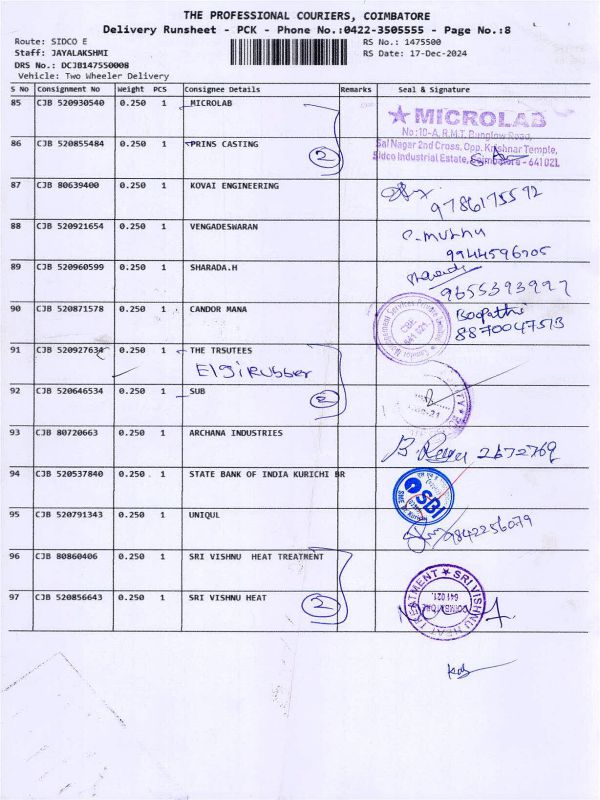 THE PROFESSIONAL COURIERS, COIMBATORE
Delivery Runsheet - PCK - Phone No.:0422-3505555 - Page No.:8
Route: SIDCO E
RS No.: 1475500
Staff: JAYALAKSHMI
RS Date: 17-Dec-2024
DRS No.: DCJB147550008
Vehicle: Two Wheeler Delivery
S No Consignment No Weight PCS Consignee Details Remarks Seal & Signature
85 CJB 520930540 0.250 1 MICROLAB
MICROLAB
No:10-A, R.M.T. Bunglow Road,
86 CJB 520855484 0.250 1 PRINS CASTING
Sai Nagar 2nd Cross, Opp. Krishnar Temple,
2 Sidco Industrial Estate, Coimbatore - 641 021.
87 CJB 80639400 0.250 1 KOVAI ENGINEERING
9786175572
88 CJB 520921654 0.250 1 VENGADESWARAN
C. muthu
9944596705
89 CJB 520960599 0.250 1 SHARADA.H
Sharada
9655393997
90 CJB 520871578 0.250 1 CANDOR MANA
CBE
641 021
Boopathi
8870047513
91 CJB 520927634 0.250 1 THE TRSUTEES
Elgi Rubber
92 CJB 520646534 0.250 1 SUB
2
93 CJB 80720663 0.250 1 ARCHANA INDUSTRIES
2672769
94 CJB 520537840 0.250 1 STATE BANK OF INDIA KURICHI BR
SBI
95 CJB 520791343 0.250 1 UNIQUL
9842256079
96 CJB 80860406 0.250 1 SRI VISHNU HEAT TREATMENT
97 CJB 520856643 0.250 1 SRI VISHNU HEAT
2
SRI VISHNU HEAT TREATMENT
COIMBATORE
641 021.